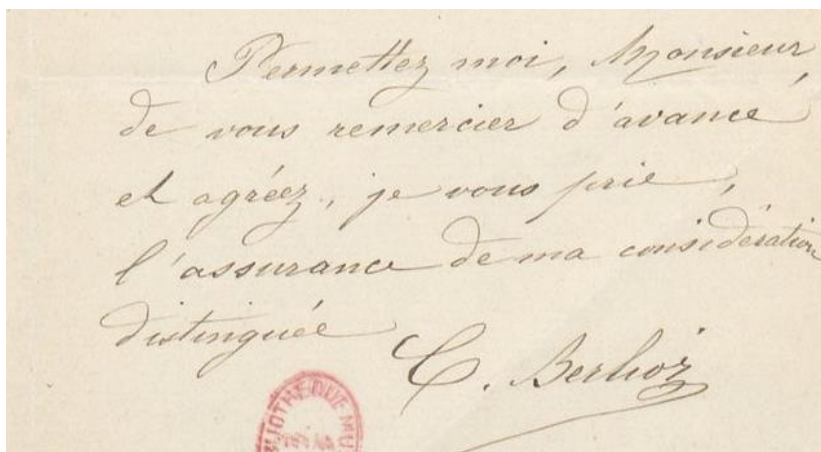 Permettez moi, Monsieur,
de vous remercier d'avance
et agréez, je vous prie,
l'assurance de ma considération
distinguée
C. Berlioz